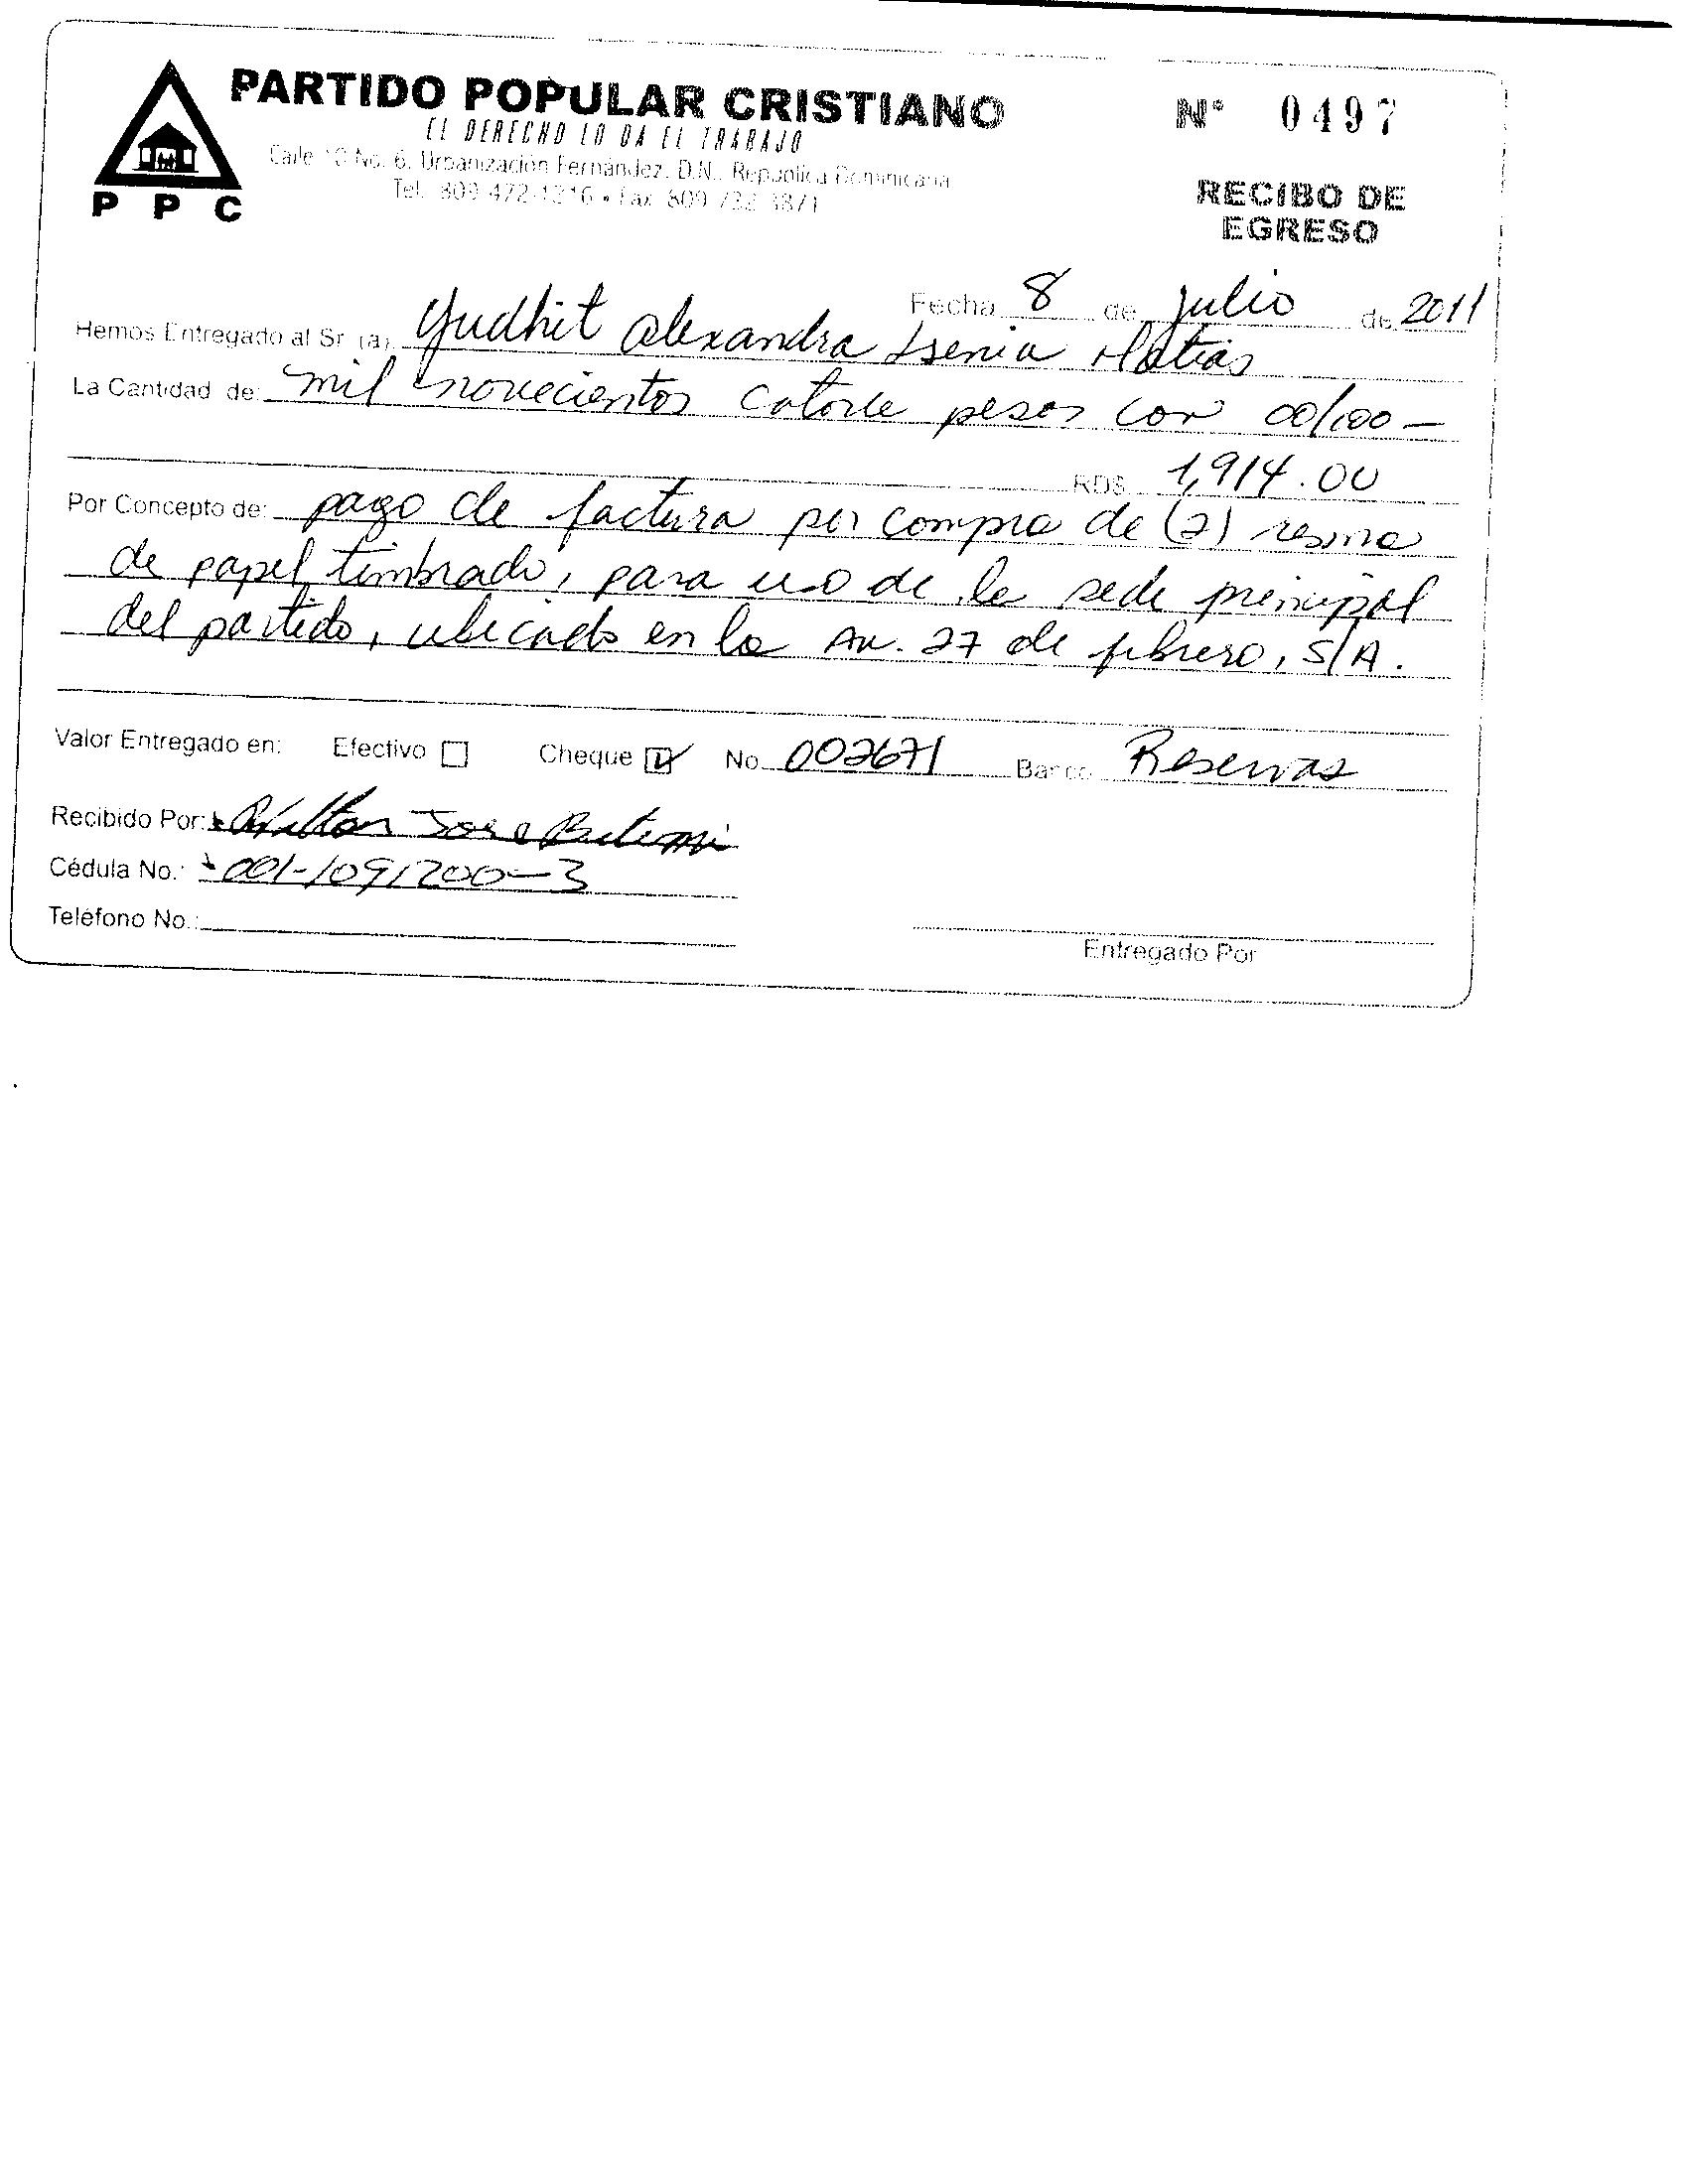 PARTIDO POPULAR CRISTIANO
EL DERECHO LO DA EL TRABAJO
Calle 10 No. 6, Urbanización Fernández, D.N., República Dominicana
Tel. 809-472-1216 • Fax 809 732
P P C
N° 0497
RECIBO DE
EGRESO
Fecha 8 de julio de 2011
Hemos Entregado al Sr. (a) Yudhit Alexandra Isenia Matias
La Cantidad de: mil novecientos catorce pesos con 00/100 -
RD$ 1,914.00
Por Concepto de: pago de factura por compra de (2) resma
de papel timbrado, para uso de la sede principal
del partido, ubicado en la Av. 27 de febrero, S/A.
Valor Entregado en: Efectivo Cheque No 002671 Banco Reservas
Recibido Por: Jose
Cédula No.: 001-1091200-3
Teléfono No.:
Entregado Por